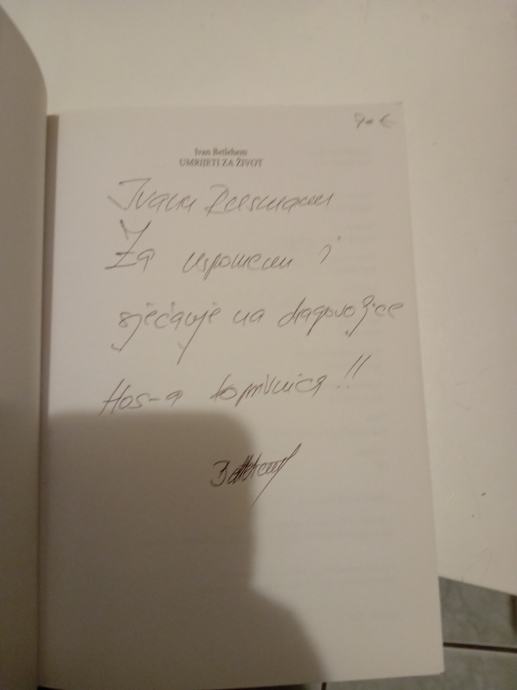 90 €
Ivan Betlehem
UMRIJETI ZA ŽIVOT
Ivanu
Za uspomenu i
sjećanje na dragovoljce
Hos-a
Betlehem